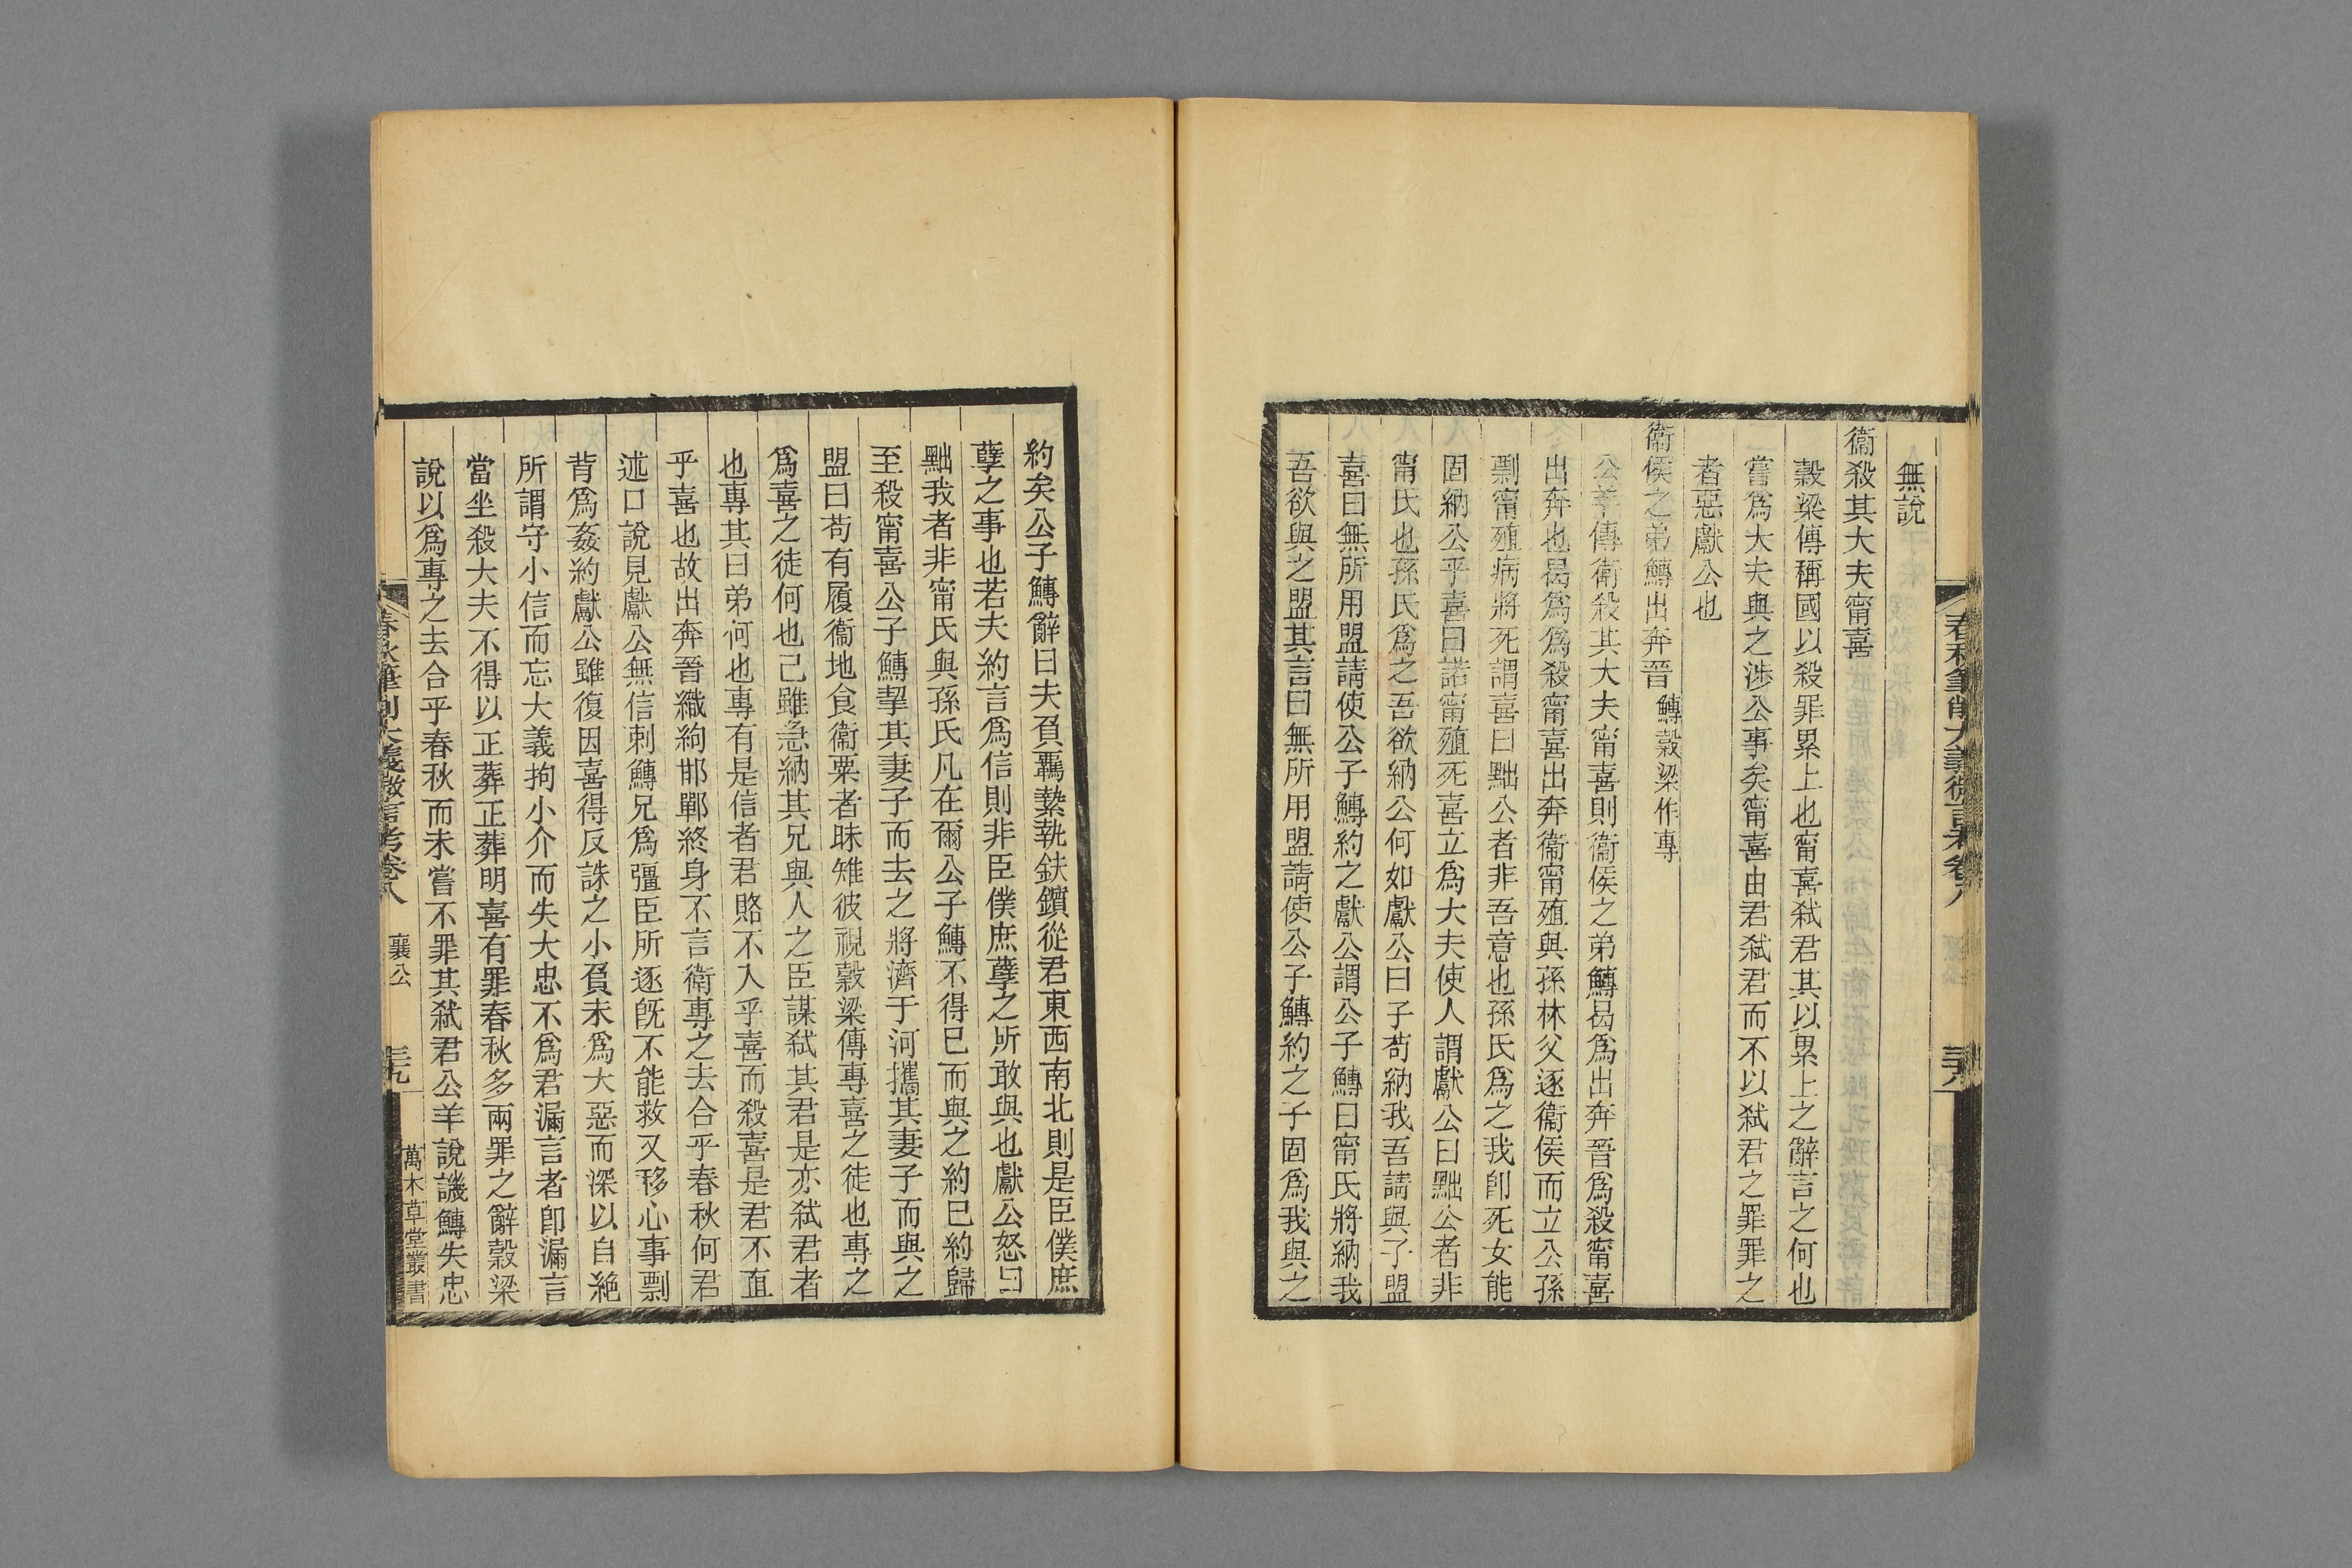 無說
衞殺其大夫甯喜
穀梁傳稱國以殺罪累上也甯喜弒君其以累上之辭言之何也
嘗爲大夫與之涉公事矣甯喜由君弒君而不以弒君之罪罪之
者惡獻公也
衞侯之弟鱄出奔晉 鱄穀梁作專
公羊傳衞殺其大夫甯喜則衞侯之弟鱄曷爲出奔晉爲殺甯喜
出奔也曷爲爲殺甯喜出奔衞甯殖與孫林父逐衞侯而立公孫
剽甯殖病將死謂喜曰黜公者非吾意也孫氏爲之我卽死女能
固納公乎喜曰諾甯殖死喜立爲大夫使人謂獻公曰黜公者非
甯氏也孫氏爲之吾欲納公何如獻公曰子苟納我吾請與子盟
喜曰無所用盟請使公子鱄約之獻公謂公子鱄曰甯氏將納我
吾欲與之盟其言曰無所用盟請使公子鱄約之子固爲我與之
約矣公子鱄辭曰夫負羈縶執鈇鑕從君東西南北則是臣僕庶
孽之事也若夫約言爲信則非臣僕庶孽之所敢與也獻公怒曰
黜我者非甯氏與孫氏凡在爾公子鱄不得已而與之約已約歸
至殺甯喜公子鱄挈其妻子而去之將濟于河攜其妻子而與之
盟曰苟有履衞地食衞粟者昧雉彼視穀梁傳專喜之徒也專之
爲喜之徒何也己雖急納其兄與人之臣謀弒其君是亦弒君者
也專其曰弟何也專有是信者君賂不入乎喜而殺喜是君不直
乎喜也故出奔晉織絇邯鄲終身不言衞專之去合乎春秋何君
述口說見獻公無信刺鱄兄爲彊臣所逐旣不能救又移心事剽
背爲姦約獻公雖復因喜得反誅之小負未爲大惡而深以自絕
所謂守小信而忘大義拘小介而失大忠不爲君漏言者卽漏言
當坐殺大夫不得以正葬正葬明喜有罪春秋多兩罪之辭穀梁
說以爲專之去合乎春秋而未嘗不罪其弒君公羊說譏鱄失忠
春秋筆削大義微言考卷八 襄公 三十九 萬木草堂叢書